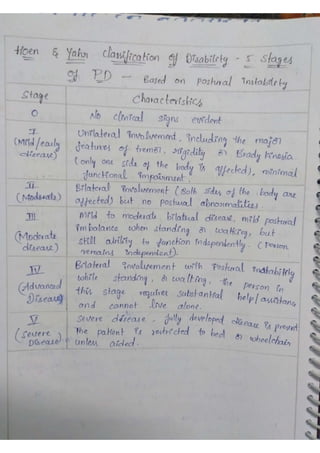 Hoen & Yahr Classification of Disability - 5 Stages
Of PD - Based on Postural Instability
Stage Characteristics
0 No clinical signs evident
I (Mild/early disease) Unilateral Involvement, Including the major
features of tremor, rigidity or Bradykinesia
(only one side of the body is affected), minimal
functional Impairment.
II (Moderate) Bilateral Involvement (Both sides of the body are
affected) but no postural abnormalities
III (Moderate disease) Mild to moderate bilateral disease, mild postural
Imbalance when standing or walking, but
still ability to function Independently. (Person
remains independent).
IV (Advanced Disease) Bilateral Involvement with Postural Instability
while standing, or walking, the person in
this stage requires substantial help/assistance
and cannot live alone.
V (Severe Disease) Severe disease, fully developed disease is present
The patient is restricted to bed or wheelchair
unless aided.